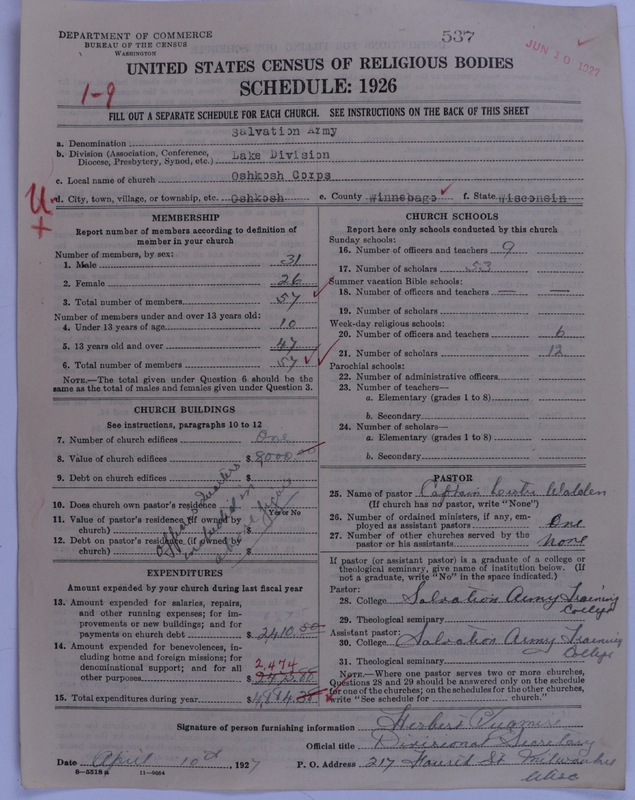 DEPARTMENT OF COMMERCE
BUREAU OF THE CENSUS
WASHINGTON
537
JUN 10 1927
UNITED STATES CENSUS OF RELIGIOUS BODIES
SCHEDULE: 1926
1-9
FILL OUT A SEPARATE SCHEDULE FOR EACH CHURCH. SEE INSTRUCTIONS ON THE BACK OF THIS SHEET
a. Denomination Salvation Army
b. Division (Association, Conference, Diocese, Presbytery, Synod, etc.) Lake Division
c. Local name of church Oshkosh Corps
d. City, town, village, or township, etc. Oshkosh e. County Winnebago f. State Wisconsin
MEMBERSHIP
Report number of members according to definition of
member in your church
Number of members, by sex:
1. Male 31
2. Female 26
3. Total number of members 57
Number of members under and over 13 years old:
4. Under 13 years of age 10
5. 13 years old and over 47
6. Total number of members 57
NOTE.—The total given under Question 6 should be
same as the total of males and females given under Question 3.
CHURCH BUILDINGS
See instructions, paragraphs 10 to 12
7. Number of church edifices One
8. Value of church edifices $ 8000.00
9. Debt on church edifices $
10. Does church own pastor's residence
Yes or No
11. Value of pastor's residence (if owned by
church) $
12. Debt on pastor's residence (if owned by
church) $
Officers quarters
included in
above figure
EXPENDITURES
Amount expended by your church during last fiscal year
13. Amount expended for salaries, repairs,
and other running expenses; for im-
provements or new buildings; and for
payments on church debt $ 2410.50
14. Amount expended for benevolences, in-
cluding home and foreign missions; for
denominational support; and for all
other purposes $ 2,474
15. Total expenditures during year $
CHURCH SCHOOLS
Report here only schools conducted by this church
Sunday schools:
16. Number of officers and teachers 9
17. Number of scholars 53
Summer vacation Bible schools:
18. Number of officers and teachers — —
19. Number of scholars
Week-day religious schools:
20. Number of officers and teachers 6
21. Number of scholars 12
Parochial schools:
22. Number of administrative officers
23. Number of teachers—
a. Elementary (grades 1 to 8)
b. Secondary
24. Number of scholars—
a. Elementary (grades 1 to 8)
b. Secondary
PASTOR
25. Name of pastor Captain Walden
(If church has no pastor, write "None")
26. Number of ordained ministers, if any, em-
ployed as assistant pastors One
27. Number of other churches served by the
pastor or his assistants None
If pastor (or assistant pastor) is a graduate of a college or
theological seminary, give name of institution below. (If
not a graduate, write "No" in the space indicated.)
Pastor:
28. College Salvation Army Training College
29. Theological seminary
Assistant pastor:
30. College Salvation Army Training College
31. Theological seminary
NOTE.—Where one pastor serves two or more churches,
Questions 28 and 29 should be answered only on the schedule
for one of the churches; on the schedules for the other churches,
write "See schedule for church."
Signature of person furnishing information Herbert
Official title Divisional Secretary
Date April 10th, 1927 P. O. Address 217 St. Milwaukee
Wisc
8-5518a 11-9664